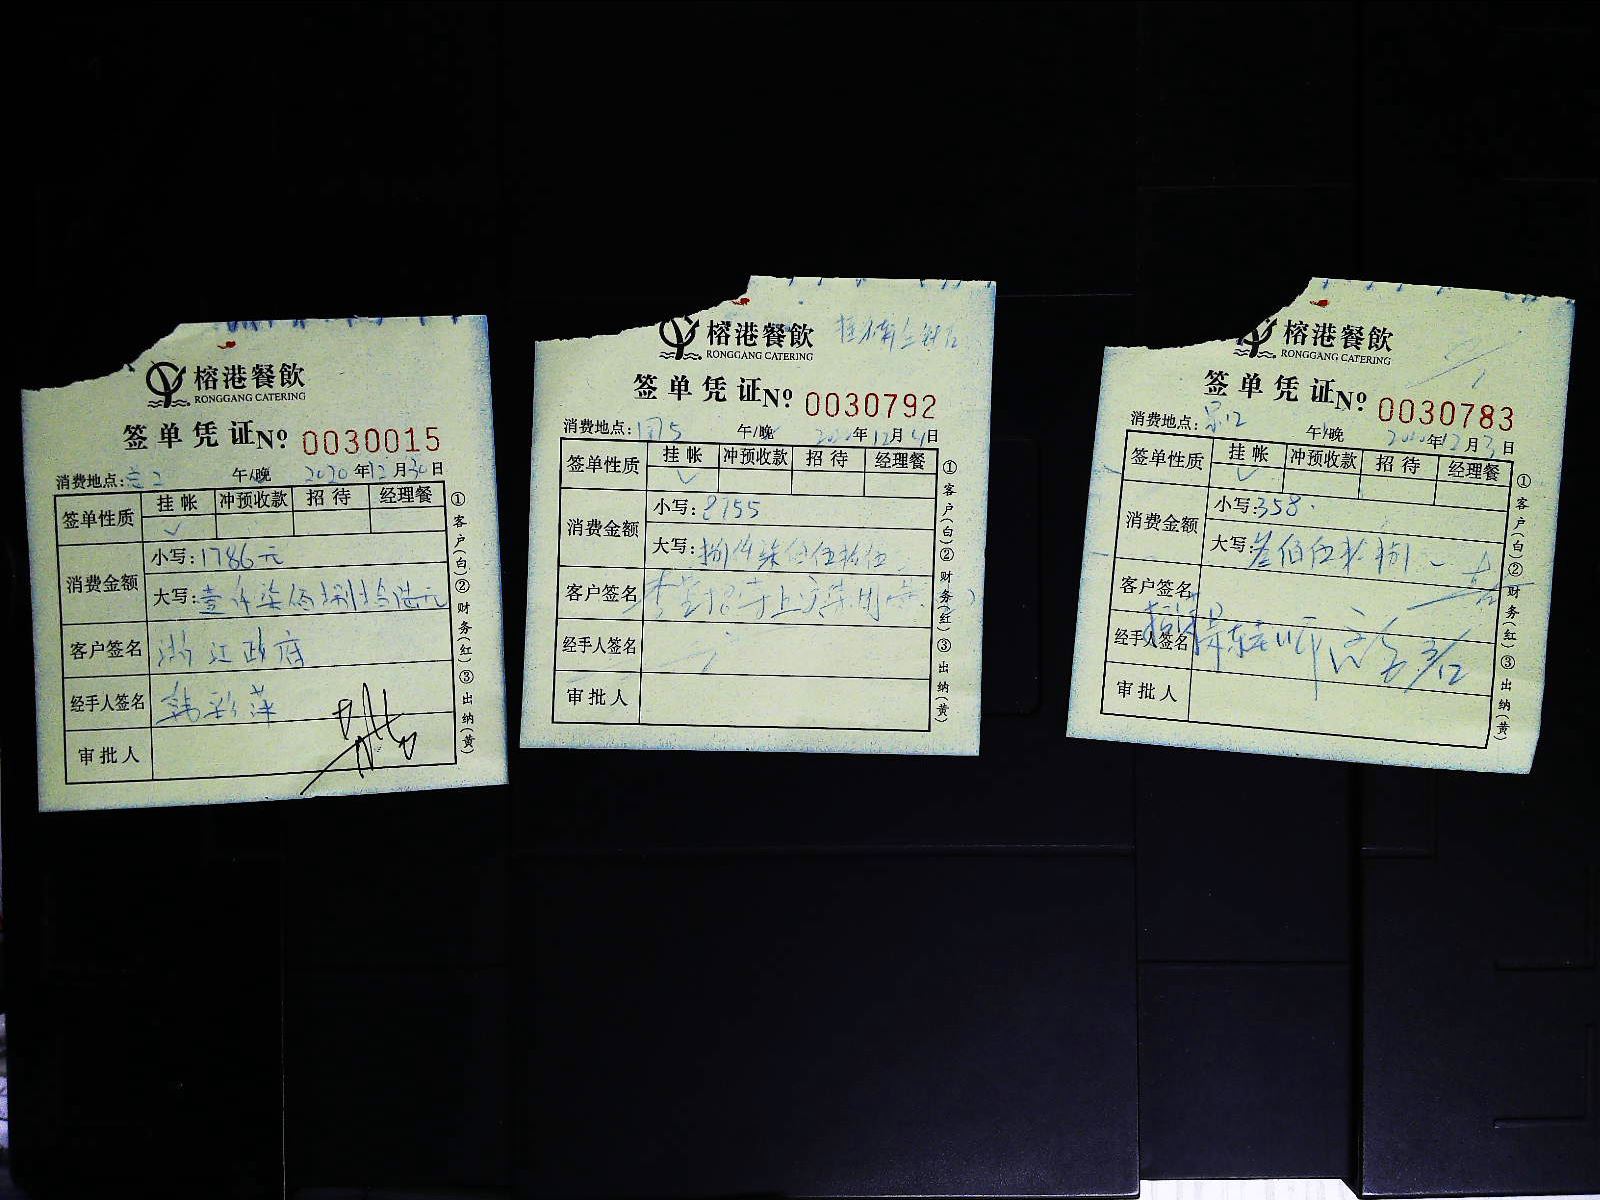 榕港餐飲
RONGGANG CATERING
签单凭证 Nº 0030015
消费地点: 午/晚 2020年12月30日
签单性质 挂帐 冲预收款 招待 经理餐
✓
消费金额 小写:1786元
大写:壹仟柒佰捌拾陆元
客户签名 浙江政府
经手人签名 韩彩萍
审批人
①客户(白)②财务(红)③出纳(黄)
榕港餐飲
RONGGANG CATERING
签单凭证 Nº 0030792
消费地点: 午/晚 2020年12月4日
签单性质 挂帐 冲预收款 招待 经理餐
✓
消费金额 小写:8755
大写:捌仟柒佰伍拾伍
客户签名
经手人签名
审批人
①客户(白)②财务(红)③出纳(黄)
榕港餐飲
RONGGANG CATERING
签单凭证 Nº 0030783
消费地点: 午/晚 2020年12月3日
签单性质 挂帐 冲预收款 招待 经理餐
✓
消费金额 小写:358.
大写:叁佰伍拾捌
客户签名
经手人签名 3/12
审批人
①客户(白)②财务(红)③出纳(黄)